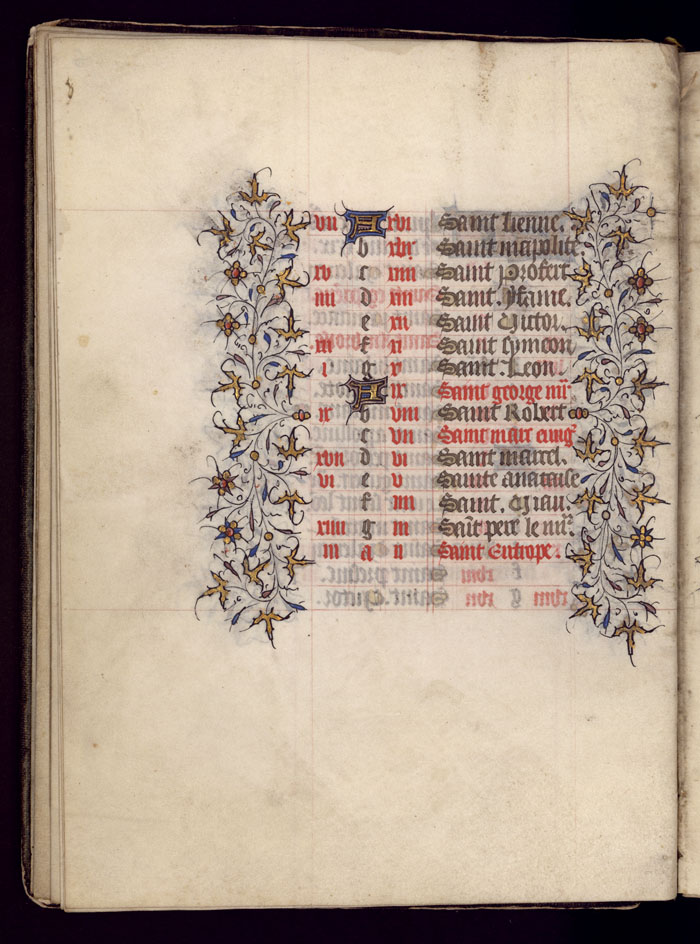 vii A xvi Saint lienne.
b xv Saint mapolite
xv c xiiii Saint Profert
iiii d xiii Saint. yfaine.
e xii Saint Victor.
xii f xi Saint symeon
i g x Saint. Leon
A ix Saint george m̄.
ix b viii Saint Robert
c vii Saint marc euug̃
xvii d vi Saint marcel.
vi e v Sainte anataise
f iiii Saint. Vital.
xiiii g iii Saīt pere le m̄.
iii a ii Saint Eutrope.